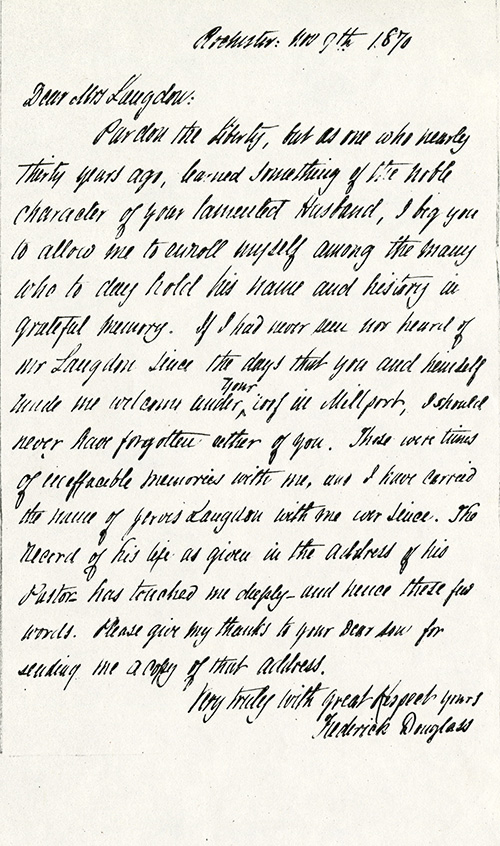 Rochester: Nov 9th 1870
Dear Mrs Langdon:
Pardon the liberty, but as one who nearly
thirty years ago, learned something of the noble
character of your lamented Husband, I beg you
to allow me to enroll myself among the many
who to day hold his name and history in
grateful memory. If I had never seen nor heard of
mr Langdon since the days that you and himself
your
made me welcome under roof in Millport, I should
never have forgotten either of you. Those were times
of ineffaceable memories with me, and I have carried
the name of Jervis Langdon with me ever since. The
record of his life as given in the address of his
Pastor has touched me deeply - and hence these few
words. Please give my thanks to your Dear son for
sending me a copy of that address.
Very truly with great Respect yours
Frederick Douglass